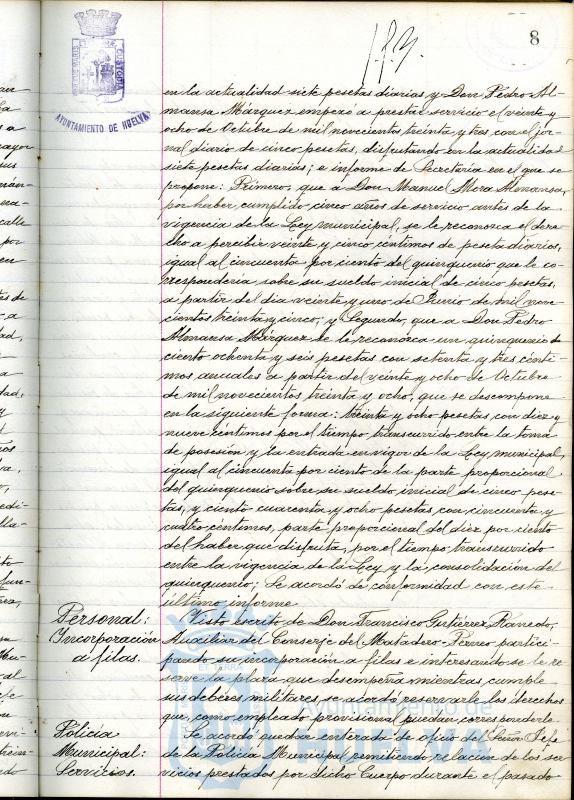 8
AYUNTAMIENTO DE HUELVA
en la actualidad siete pesetas diarias y Don Pedro Al-
mansa Márquez empezó a prestar servicio el veinte y
ocho de Octubre de mil novecientos treinta y tres con el jor-
nal diario de cinco pesetas, disfrutando en la actualidad
siete pesetas diarias; e informe de Secretaría en el que se
propone: Primero, que a Don Manuel Mora Almansa,
por haber cumplido cinco años de servicio antes de la
vigencia de la Ley municipal, se le reconozca el dere-
cho a percibir veinte y cinco céntimos de peseta diarios,
igual al cincuenta por ciento del quinquenio que le co-
rrespondería sobre su sueldo inicial de cinco pesetas,
a partir del día veinte y uno de Junio de mil nove-
cientos treinta y cinco; y Segundo, que a Don Pedro
Almansa Márquez se le reconozca un quinquenio de
ciento ochenta y seis pesetas con setenta y tres cénti-
mos anuales a partir del veinte y ocho de Octubre
de mil novecientos treinta y ocho, que se descompone
en la siguiente forma: treinta y ocho pesetas con diez y
nueve céntimos por el tiempo transcurrido entre la toma
de posesión y la entrada en vigor de la Ley municipal,
igual al cincuenta por ciento de la parte proporcional
del quinquenio sobre su sueldo inicial de cinco pese-
tas, y ciento cuarenta y ocho pesetas con cincuenta y
cuatro céntimos, parte proporcional del diez por ciento
del haber que disfruta, por el tiempo transcurrido
entre la vigencia de la Ley y la consolidación del
quinquenio; Se acordó de conformidad con este
último informe
Personal:
Incorporación
a filas.
Visto escrito de Don Francisco Gutiérrez Ranedo,
Auxiliar del Conserje del Matadero-Perneo partici-
pando su incorporación a filas e interesando se le re-
serve la plaza que desempeña mientras cumple
sus deberes militares se acordó reservarle los derechos
que, como empleado provisional puedan corresponderle.
Policía
Municipal:
Servicios.
Se acordó quedar enterado de oficio del Señor Jefe
de la Policía Municipal remitiendo relación de los ser-
vicios prestados por dicho Cuerpo durante el pasado
Ayuntamiento de
HUELVA